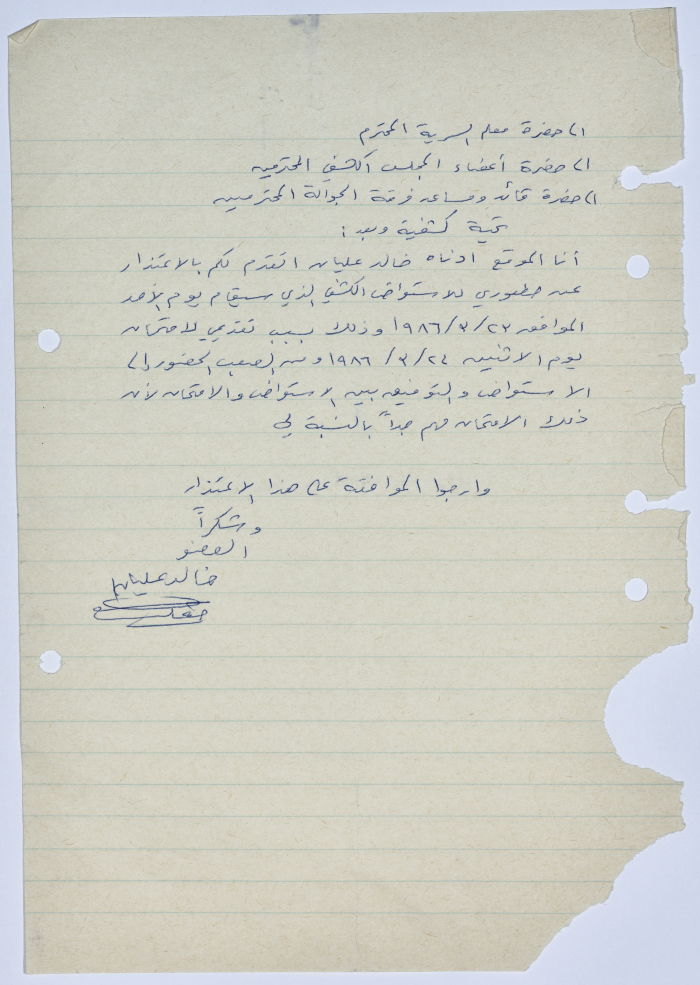 الى حضرة معلم السرية المحترم
الى حضرة أعضاء المجلس الكشفي المحترمين
الى حضرة قائد ومساعد فرقة الجوالة المحترميين
تحية كشفية وبعد :
أنا الموقع أدناه خالد عليان اتقدم لكم بالاعتذار
عن حضوري للاستعراض الكشفي الذي سيقام يوم الأحد
الموافق ٢٣/٣/١٩٨٦ وذلك بسبب تقديمي لامتحان
يوم الاثنين ٢٤/٣/١٩٨٦ ومن الصعب الحضور إلى
الاستعراض والتوفيق بين الاستعراض والامتحان لأن
ذلك الامتحان مهم جداً بالنسبة لي
وارجوا الموافقة على هذا الاعتذار
وشكراً
العضو
خالد عليان